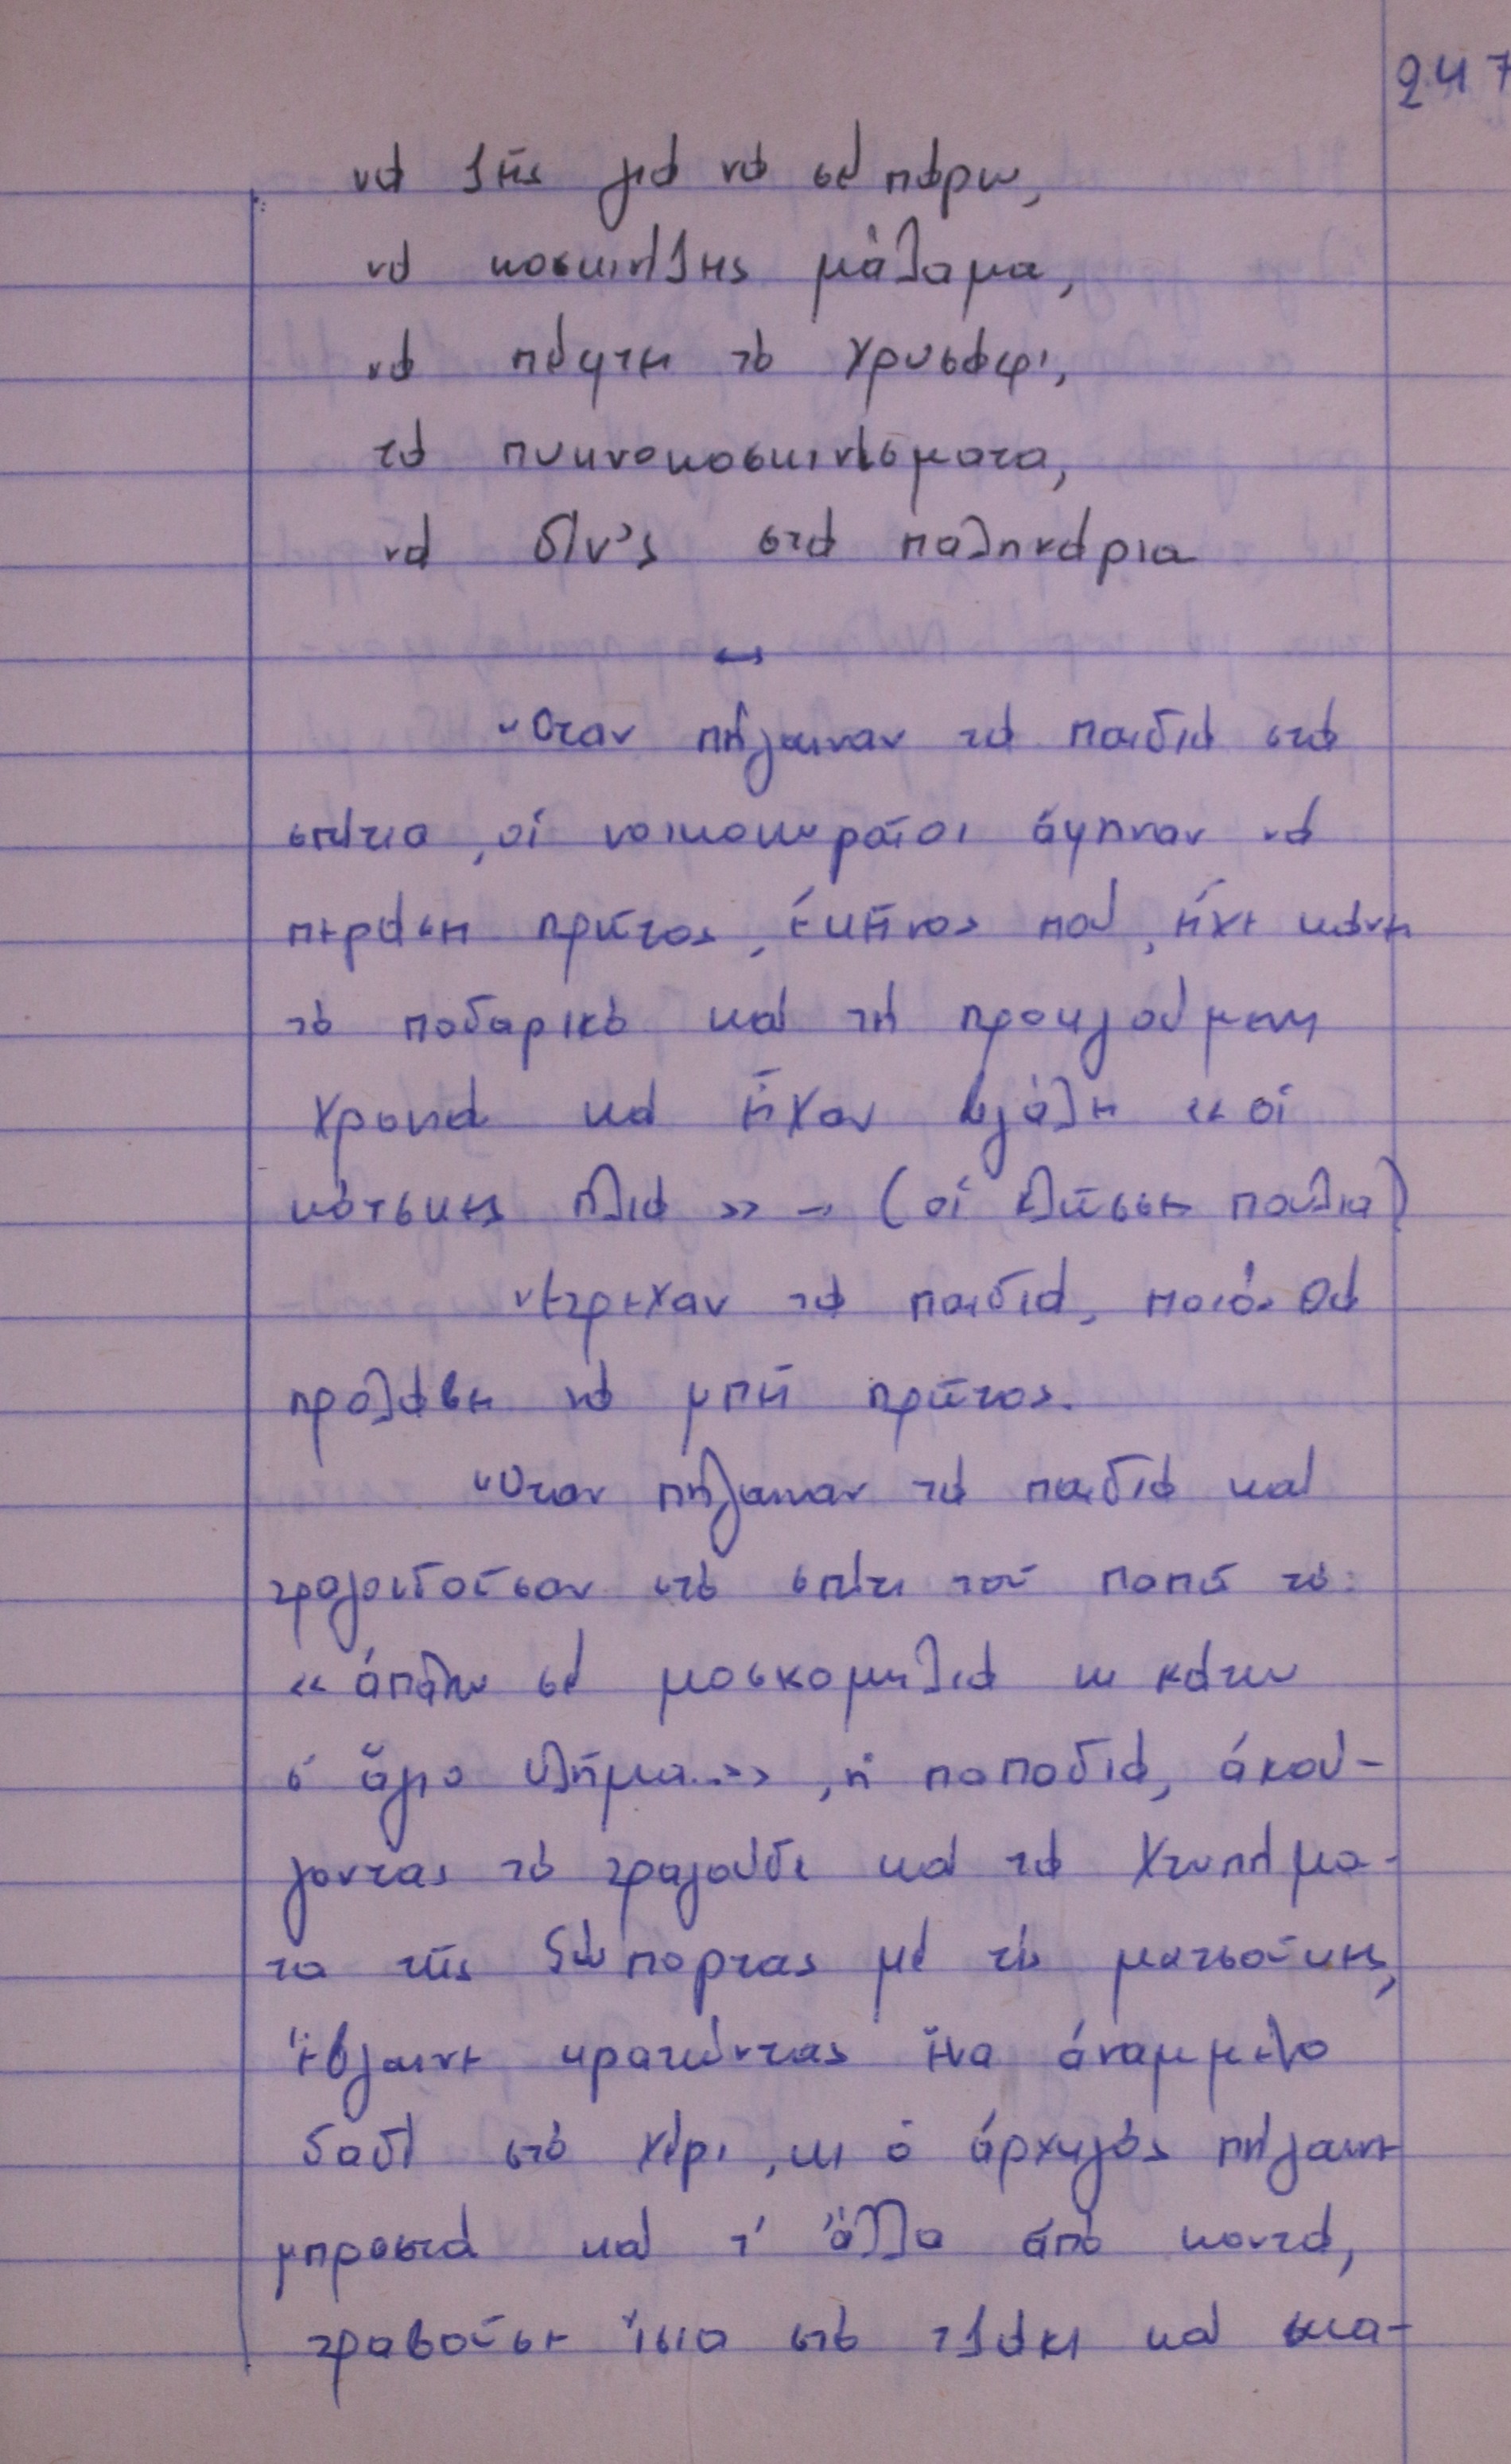 247
νά ζῆς γιά νά σέ πάρω,
νά κοσκινίζης μάλαμα,
νά πέφτη τό χρυσάφι,
τά πυκνοκοσκινίσματα,
νά δίν'ς στά παληκάρια
Ὅταν πήγαιναν τά παιδιά στά
σπίτια, οἱ νοικοκυραῖοι ἄφηναν νά
περάση πρῶτος, ἐκεῖνος πού, εἶχε κάνει
τό ποδαρικό καί τή προηγούμενη
χρονιά καί εἶχαν βγάλει «οἱ
κότσκες πλιά» – (οἱ κλῶσσες πουλιά)
Ἔτρεχαν τά παιδιά, ποιός θά
προλάβει νά μπεῖ πρῶτος.
Ὅταν πήγαιναν τά παιδιά καί
τραγουδοῦσαν στό σπίτι τοῦ παπᾶ τό:
«ἀπάνω σέ μοσκομηλιά κι κάτω
σ' ἅγιο κλῆμα..», ἡ παπαδιά, ἀκού-
γοντας τό τραγούδι καί τά χτυπήμα-
τα τῆς ξώπορτας μέ τίς ματσοῦκες,
ἔβγαινε κρατώντας ἕνα ἀναμμένο
δαδί στό χέρι, κι ὁ ἀρχηγός πήγαινε
μπροστά καί τ' ἄλλα ἀπό κοντά,
τραβοῦσε ἴσια στό τζάκι καί σκα-